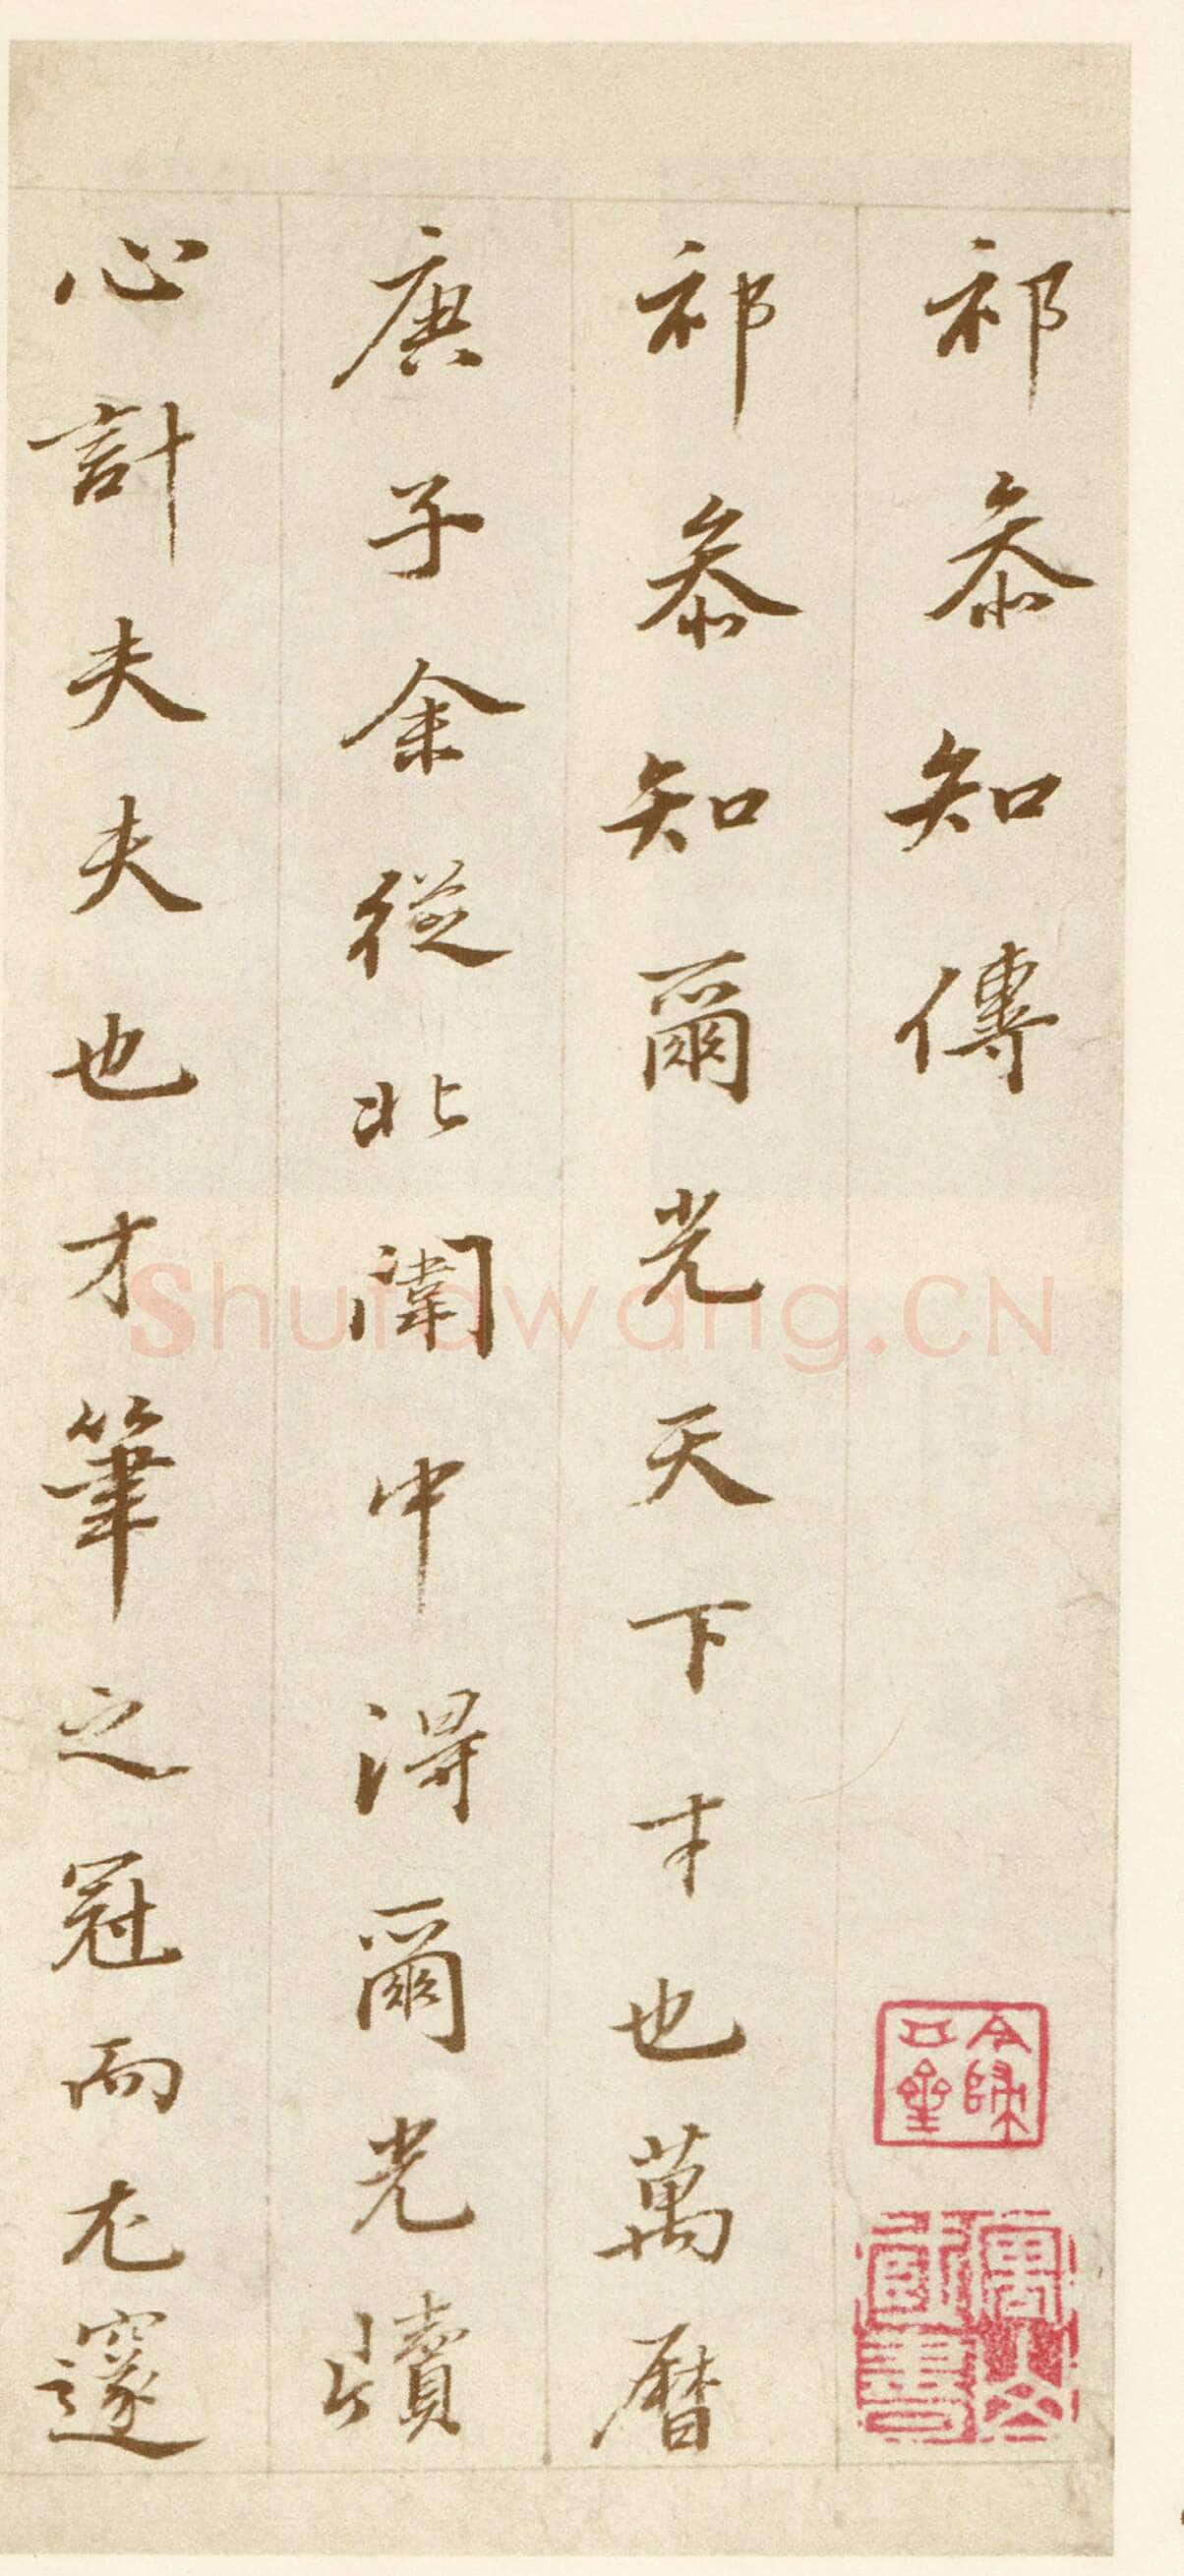 祁叅知傳
祁叅知爾光天下才也萬曆
庚子余從北闈中得爾光牘
心計夫夫也才筆之冠而尤邃
Shufawang.CN